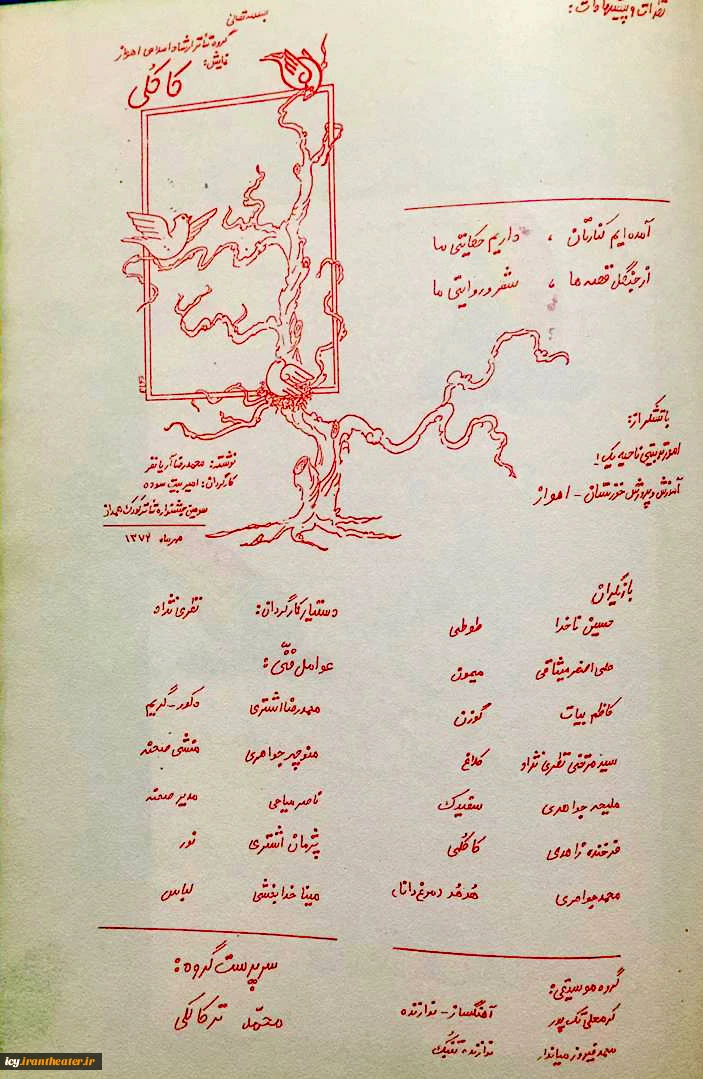 نظرات و پیشنهادات:
بسمه تعالی
گروه تئاتر ارشاد اسلامی اهواز
نمایش:
کاکلی
آمده ایم کنارتان ، داریم حکایتی ما
از جنگل قصه ها ، شعر و روایتی ما
با تشکر از:
امور تربیتی ناحیه یک ۱
آموزش و پرورش خوزستان - اهواز
نوشته: محمدرضا آریانفر
کارگردان: امیر بیت سوده
سومین جشنواره تئاتر کودک همدان
مهرماه ۱۳۷۲
بازیگران
حسین ناخدا طوطی
علی اصغر میثاقی میمون
کاظم بیات گوزن
سید مرتضی نظری نژاد کلاغ
ملیحه جواهری سفیدک
فرخنده زاهدی کاکلی
محمد جواهری هدهد (مرغ دانا)
دستیار کارگردان: نظری نژاد
عوامل فنی:
محمدرضا اشتری دکور - گریم
منوچهر جواهری منشی صحنه
ناصر میاحی مدیر صحنه
پژمان اشتری نور
مینا خدابخشی لباس
سرپرست گروه:
محمد ترکالکی
گروه موسیقی:
کرمعلی تک پور آهنگساز - نوازنده
محمد فیروز میاندار نوازنده تنبک
icy.irantheater.ir